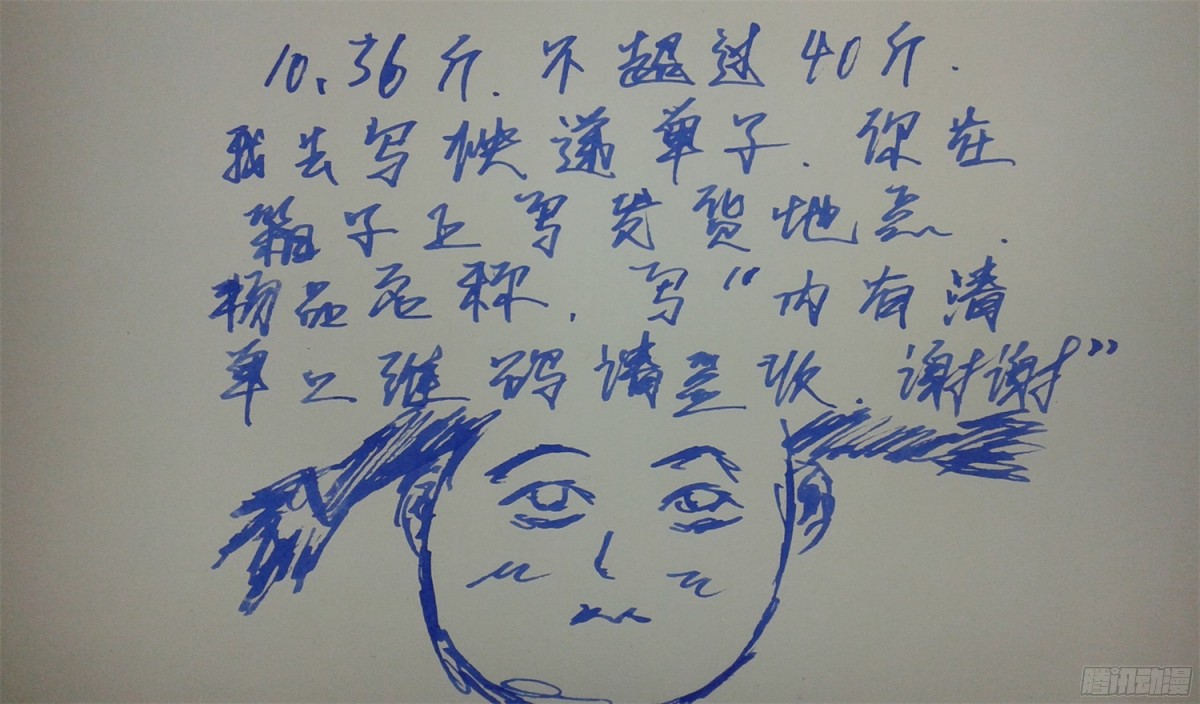 10、36斤.不超过40斤.
我去写快递单子.你在
箱子上写发货地点.
物品名称.写“内有清
单二维码请签收.谢谢”
腾讯动漫